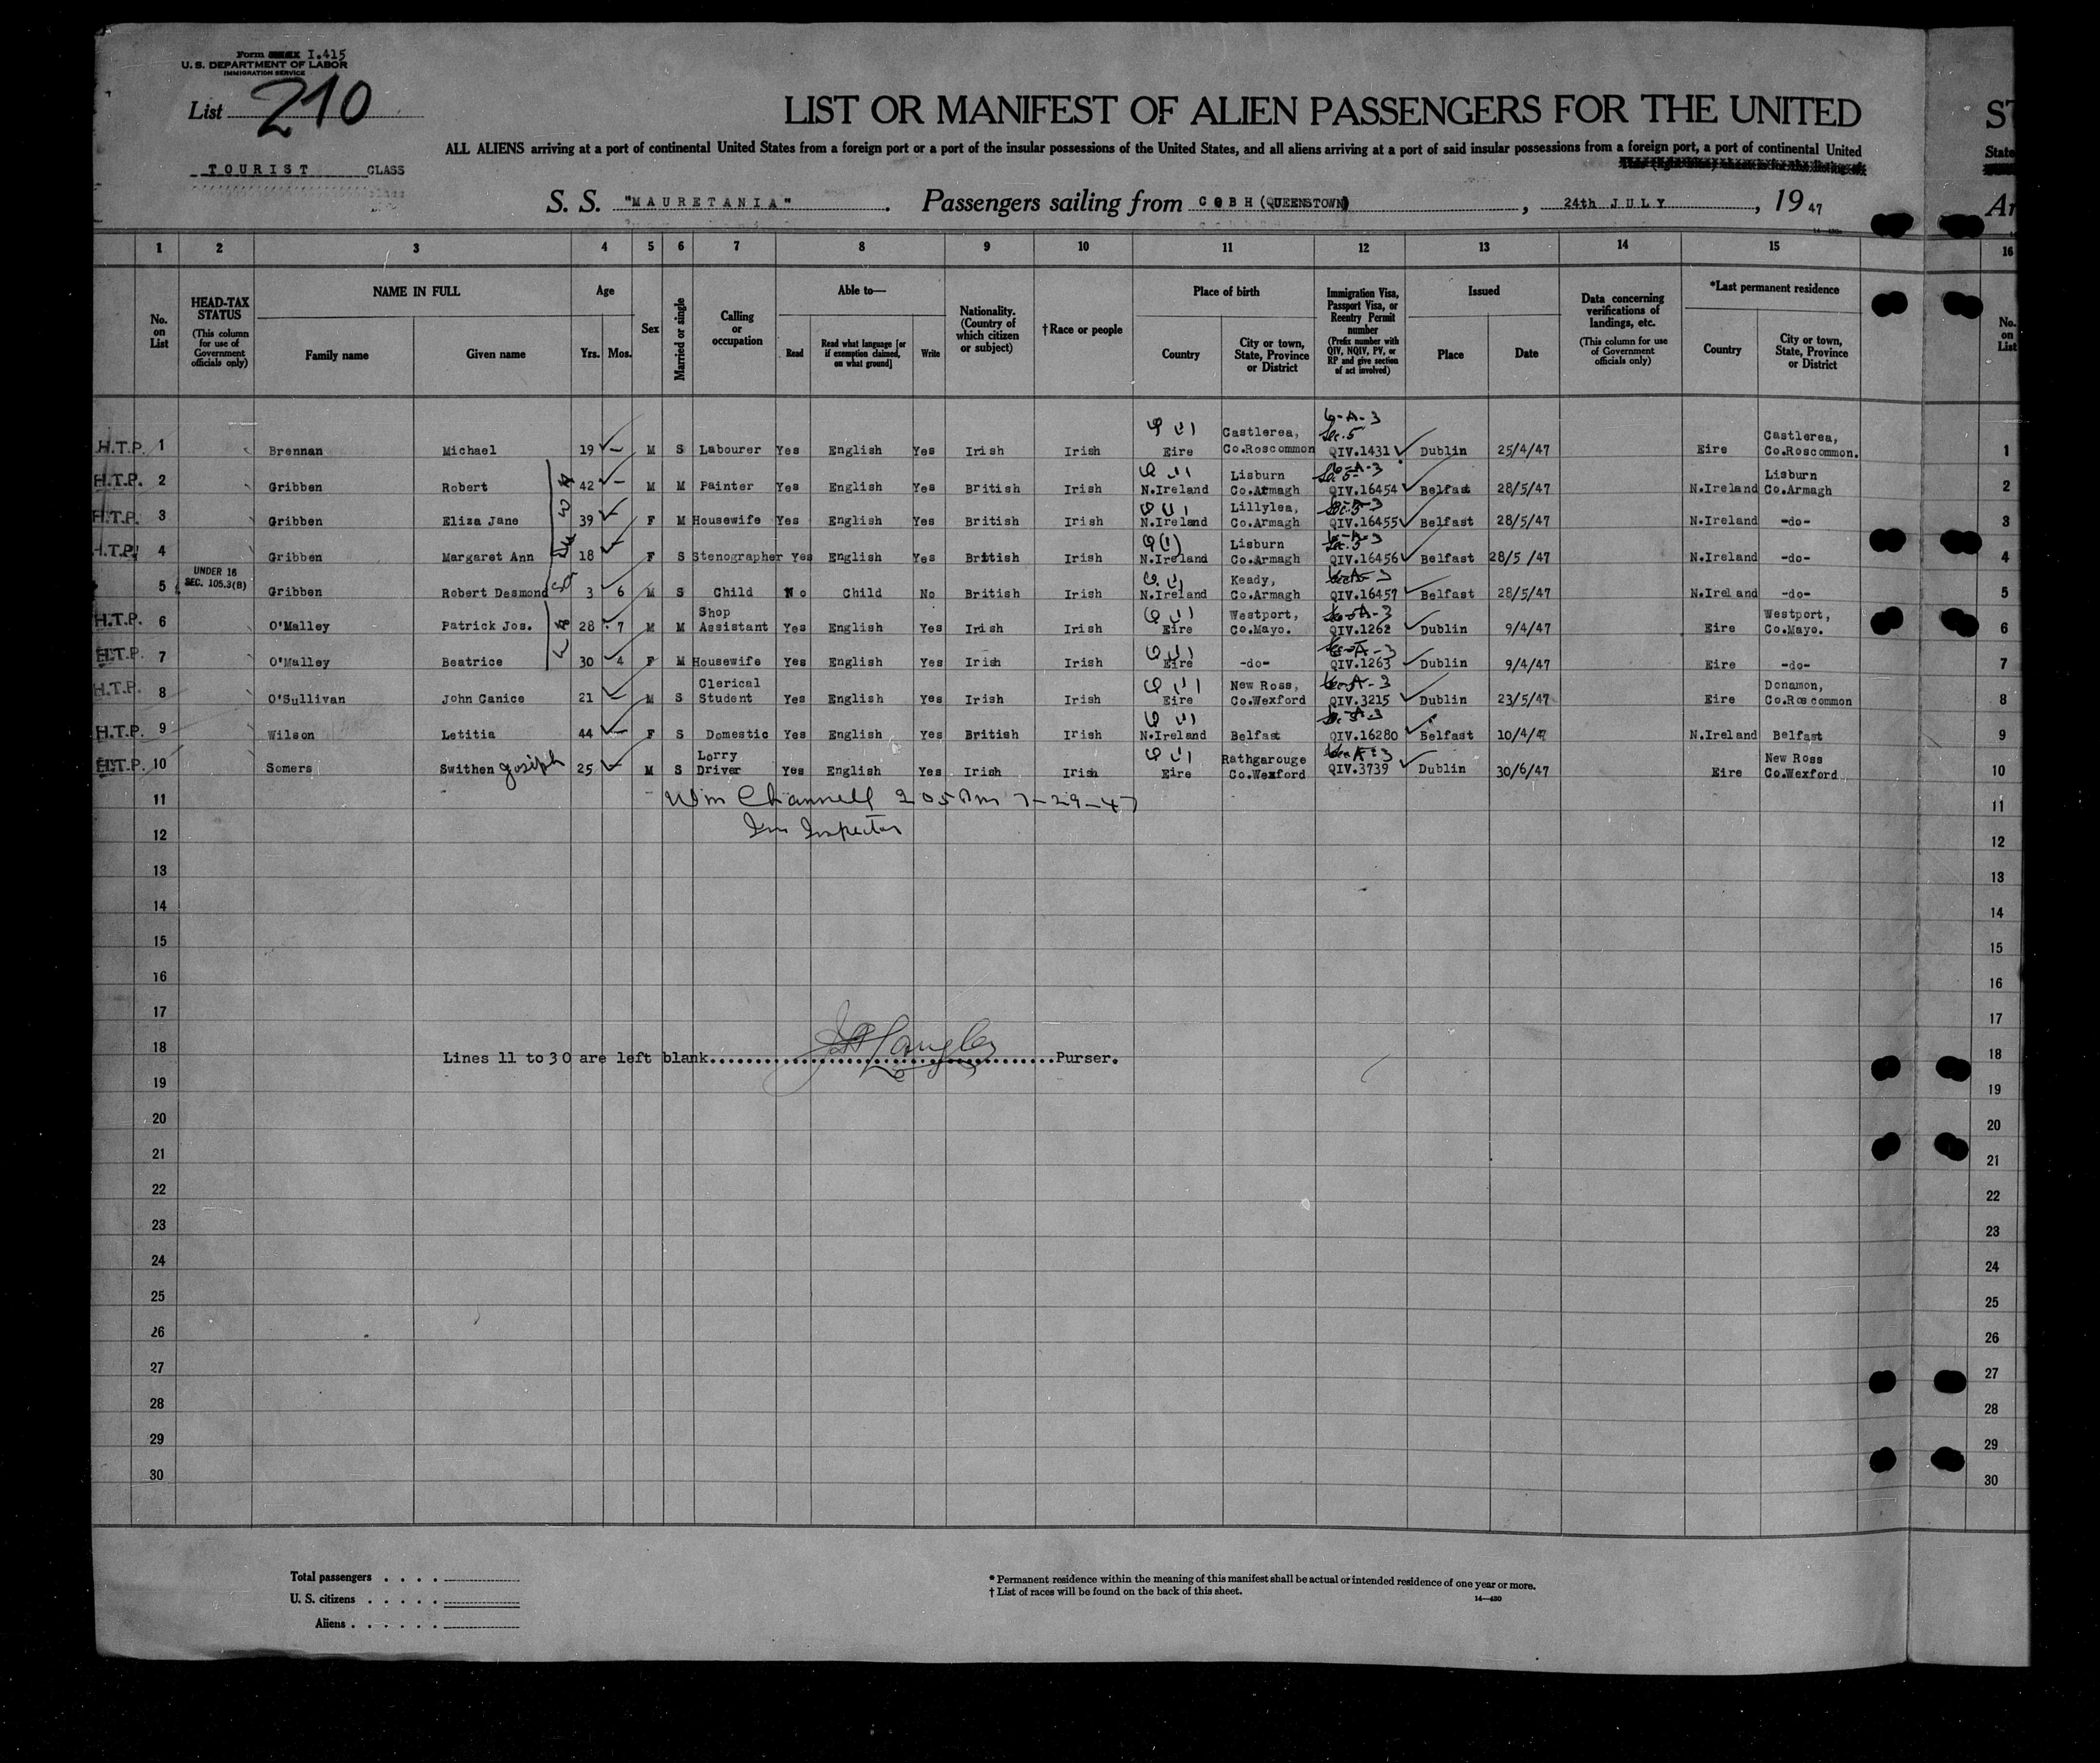 Form I.415
U. S. DEPARTMENT OF LABOR
IMMIGRATION SERVICE
List 210
TOURIST CLASS
LIST OR MANIFEST OF ALIEN PASSENGERS FOR THE UNITED
ST
ALL ALIENS arriving at a port of continental United States from a foreign port or a port of the insular possessions of the United States, and all aliens arriving at a port of said insular possessions from a foreign port, a port of continental United
State
S. S. "MAURETANIA". Passengers sailing from COBH (QUEENSTOWN), 24th JULY, 19 47
Ar
1 2 3 4 5 6 7 8 9 10 11 12 13 14 15 16
No. on List
HEAD-TAX STATUS
(This column for use of Government officials only)
NAME IN FULL
Family name Given name
Age
Yrs. Mos.
Sex
Married or single
Calling or occupation
Able to—
Read Read what language [or if exemption claimed, on what ground] Write
Nationality. (Country of which citizen or subject)
†Race or people
Place of birth
Country City or town, State, Province or District
Immigration Visa, Passport Visa, or Reentry Permit number
(Prefix number with QIV, NQIV, PV, or RP and give section of act involved)
Issued
Place Date
Data concerning verifications of landings, etc.
(This column for use of Government officials only)
*Last permanent residence
Country City or town, State, Province or District
No. on List
H.T.P. 1 Brennan Michael 19 – M S Labourer Yes English Yes Irish Irish Eire Castlerea, Co.Roscommon 6-A-3 Sec.5 QIV.1431 Dublin 25/4/47 Eire Castlerea, Co.Roscommon. 1
H.T.P. 2 Gribben Robert 42 – M M Painter Yes English Yes British Irish N.Ireland Lisburn Co.Armagh QIV.16454 Belfast 28/5/47 N.Ireland Lisburn Co.Armagh 2
H.T.P. 3 Gribben Eliza Jane 39 – F M Housewife Yes English Yes British Irish N.Ireland Lillylea, Co.Armagh QIV.16455 Belfast 28/5/47 N.Ireland -do- 3
H.T.P. 4 Gribben Margaret Ann 18 – F S Stenographer Yes English Yes British Irish N.Ireland Lisburn Co.Armagh QIV.16456 Belfast 28/5/47 N.Ireland -do- 4
5 UNDER 16 SEC. 105.3(B) Gribben Robert Desmond 3 6 M S Child No Child No British Irish N.Ireland Keady, Co.Armagh QIV.16457 Belfast 28/5/47 N.Ireland -do- 5
H.T.P. 6 O'Malley Patrick Jos. 28 7 M M Shop Assistant Yes English Yes Irish Irish Eire Westport, Co.Mayo. QIV.1262 Dublin 9/4/47 Eire Westport, Co.Mayo. 6
H.T.P. 7 O'Malley Beatrice 30 4 F M Housewife Yes English Yes Irish Irish Eire -do- QIV.1263 Dublin 9/4/47 Eire -do- 7
H.T.P. 8 O'Sullivan John Canice 21 – M S Clerical Student Yes English Yes Irish Irish Eire New Ross, Co.Wexford QIV.3215 Dublin 23/5/47 Eire Donamon, Co.Roscommon 8
H.T.P. 9 Wilson Letitia 44 – F S Domestic Yes English Yes British Irish N.Ireland Belfast QIV.16280 Belfast 10/4/47 N.Ireland Belfast 9
H.T.P. 10 Somers Swithen Joseph 25 – M S Lorry Driver Yes English Yes Irish Irish Eire Rathgarouge Co.Wexford QIV.3739 Dublin 30/6/47 Eire New Ross Co.Wexford 10
11 Wm Channell 205 Am 7-29-47 11
12 Im Inspector 12
13 13
14 14
15 15
16 16
17 17
18 Lines 11 to 30 are left blank Purser. 18
19 19
20 20
21 21
22 22
23 23
24 24
25 25
26 26
27 27
28 28
29 29
30 30
Total passengers . . . .
U. S. citizens . . . . .
Aliens . . . . . .
* Permanent residence within the meaning of this manifest shall be actual or intended residence of one year or more.
† List of races will be found on the back of this sheet.
14—430